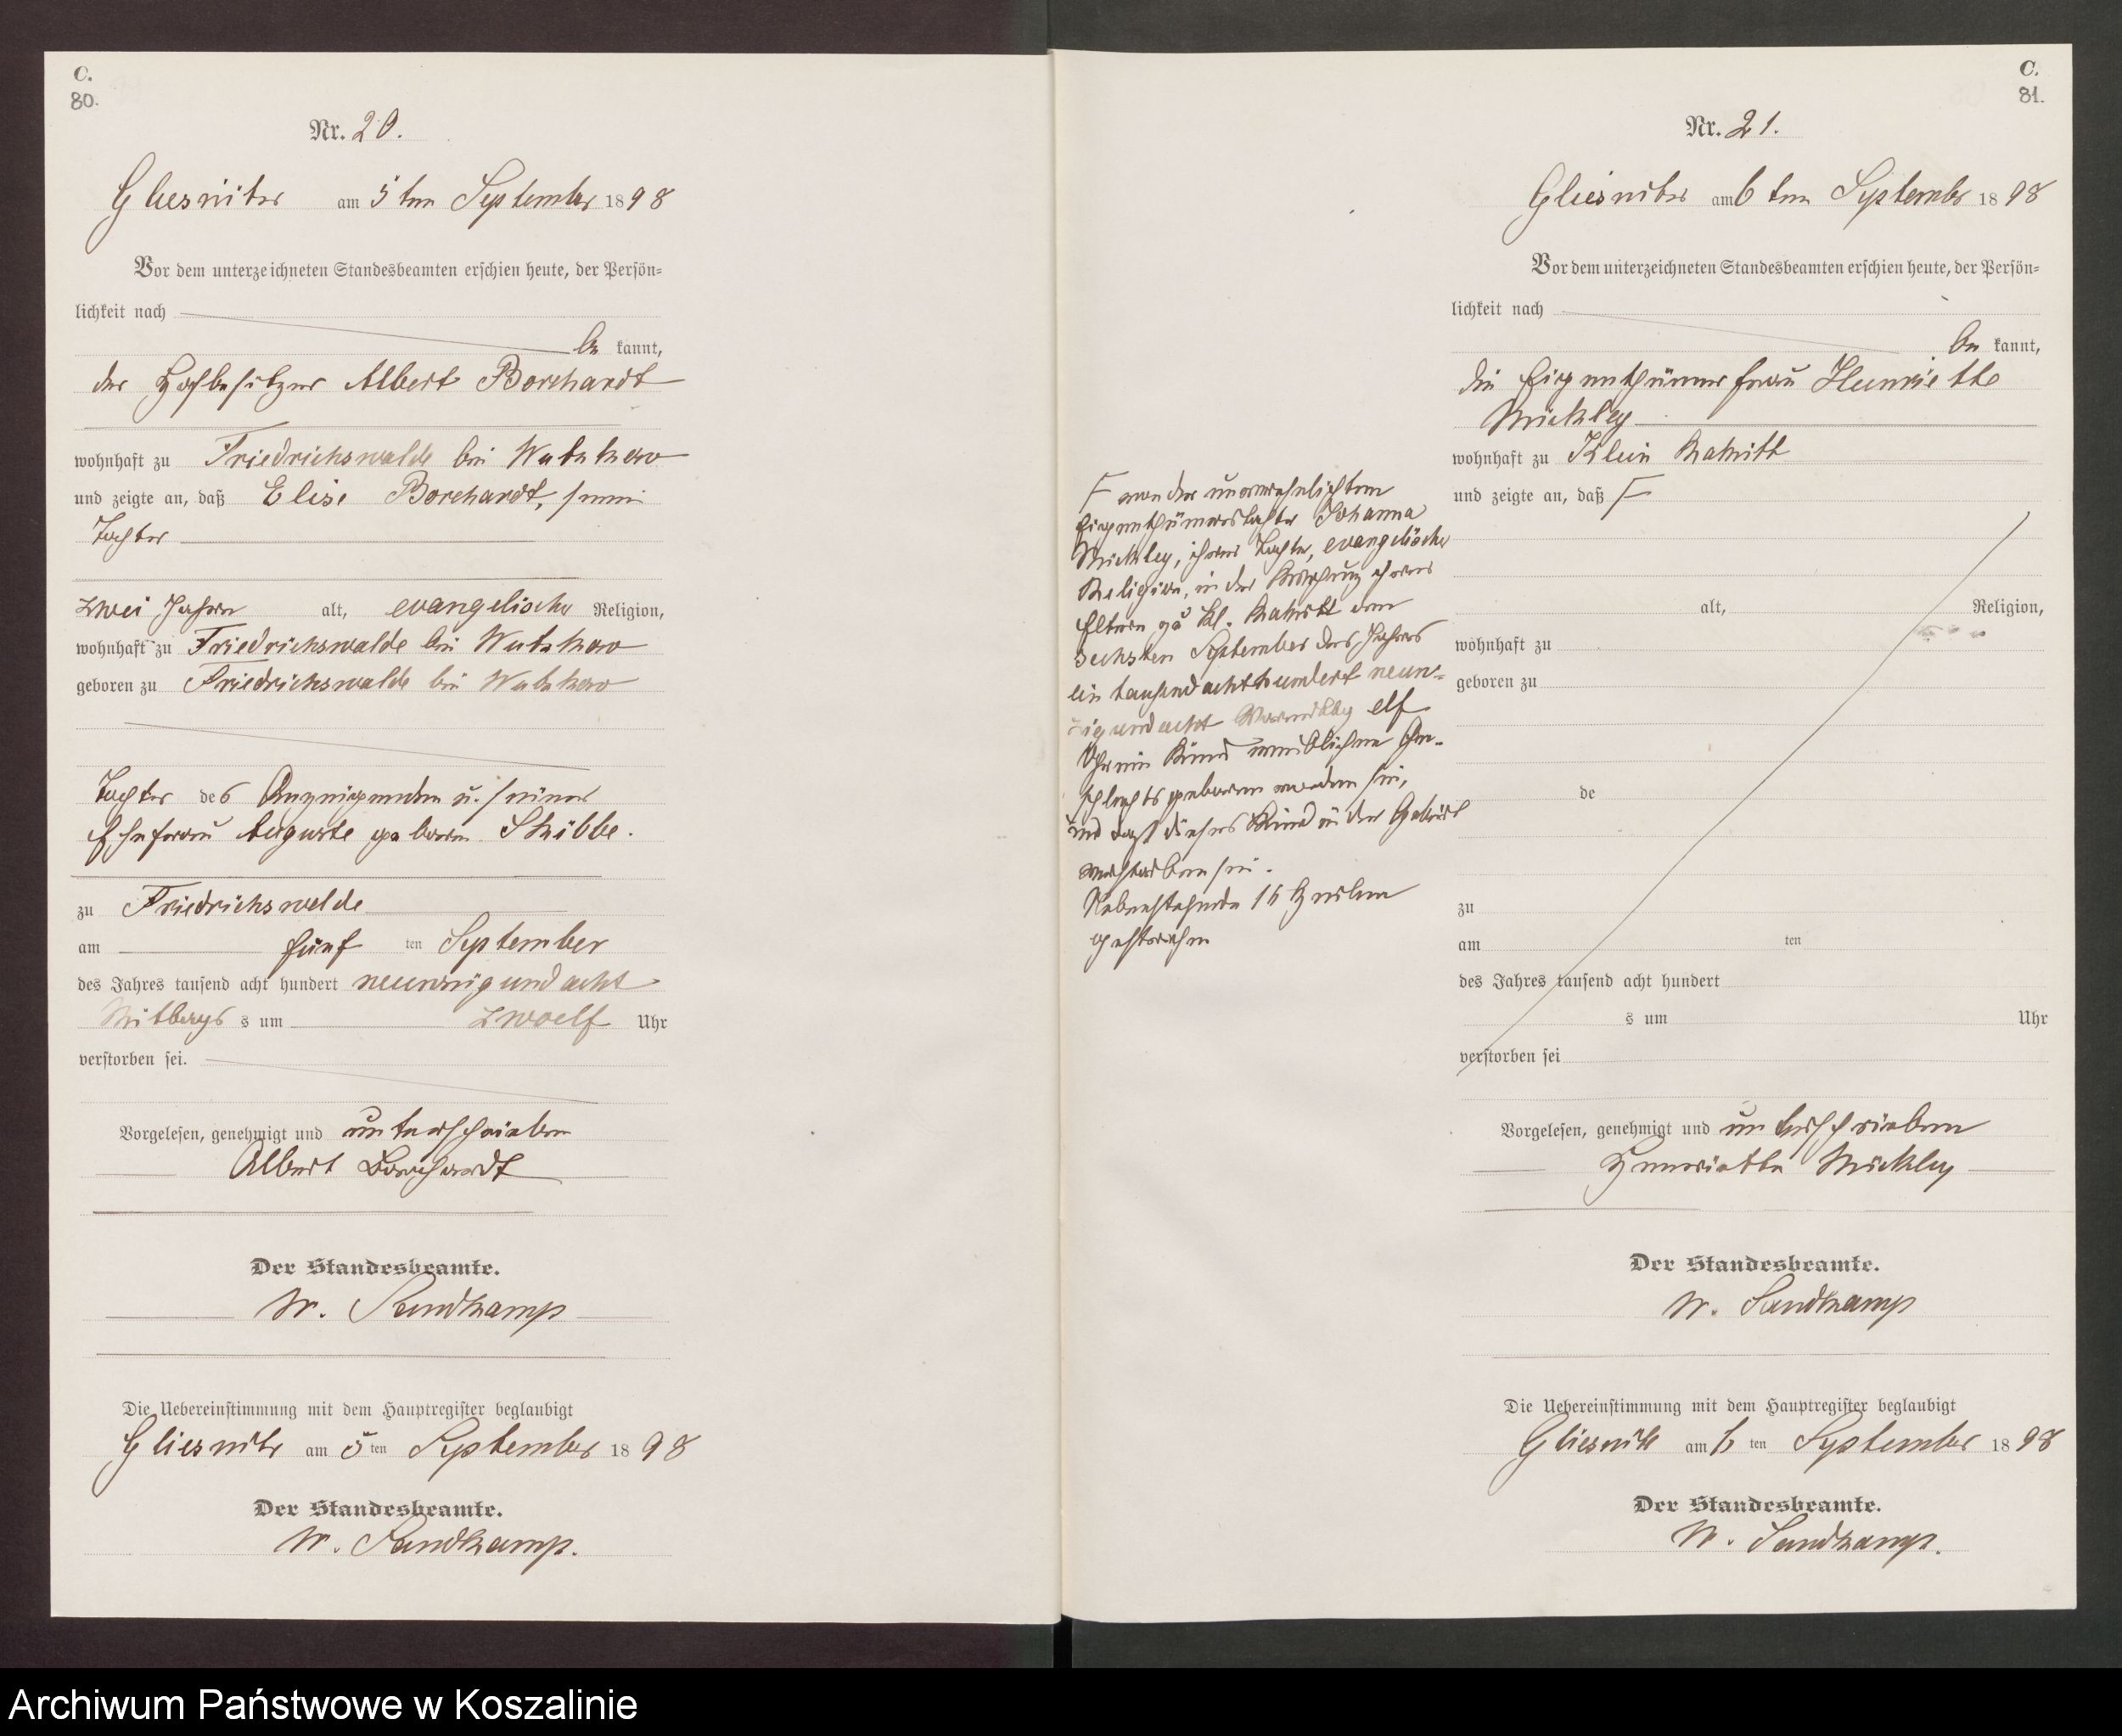 C.
80.
Nr. 20.
Gliesnitz am 5 ten September 1898
Vor dem unterzeichneten Standesbeamten erschien heute, der Persön-
lichkeit nach
be kannt,
der Hofbesitzer Albert Borchardt
wohnhaft zu Friedrichswalde bei Wutzkow
und zeigte an, daß Elise Borchardt, seine
Tochter
zwei Jahre alt, evangelischer Religion,
wohnhaft zu Friedrichswalde bei Wutzkow
geboren zu Friedrichswalde bei Wutzkow
Tochter des Anzeigenden u. seiner
Ehefrau Auguste geboren Stübbe.
zu Friedrichswalde
am fünf ten September
des Jahres tausend acht hundert neunzig und acht
Mittags s um zwoelf Uhr
verstorben sei.
Vorgelesen, genehmigt und unterschrieben
Albert Borchardt
Der Standesbeamte.
W. Sandkamp
Die Uebereinstimmung mit dem Hauptregister beglaubigt
Gliesnitz am 5 ten September 1898
Der Standesbeamte.
W. Sandkamp.
C.
81.
Nr. 21.
Gliesnitz am 6 ten September 1898
Vor dem unterzeichneten Standesbeamten erschien heute, der Persön-
lichkeit nach
be kannt,
die Eigenthümerfrau Henriette
Mickley
wohnhaft zu Klein Rakitt
und zeigte an, daß F
F von der unverehelichten
Eigenthümerstochter Johanna
Mickley, ihrer Tochter, evangelischer
Religion, in der Wohnung ihrer
Eltern zu Kl. Rakitt am
sechsten September des Jahres
ein tausend acht hundert neun-
zig und acht Vormittag elf
Uhr ein Kind weiblichen Ge-
schlechts geboren worden sei,
und daß dieses Kind in der Geburt
verstorben sei.
Nebenstehende 16 Zeilen
gestrichen
alt, Religion,
wohnhaft zu
geboren zu
de
zu
am ten
des Jahres tausend acht hundert
s um Uhr
verstorben sei
Vorgelesen, genehmigt und unterschrieben
Henriette Mickley
Der Standesbeamte.
W. Sandkamp
Die Uebereinstimmung mit dem Hauptregister beglaubigt
Gliesnitz am 6 ten September 1898
Der Standesbeamte.
W. Sandkamp.
Archiwum Państwowe w Koszalinie